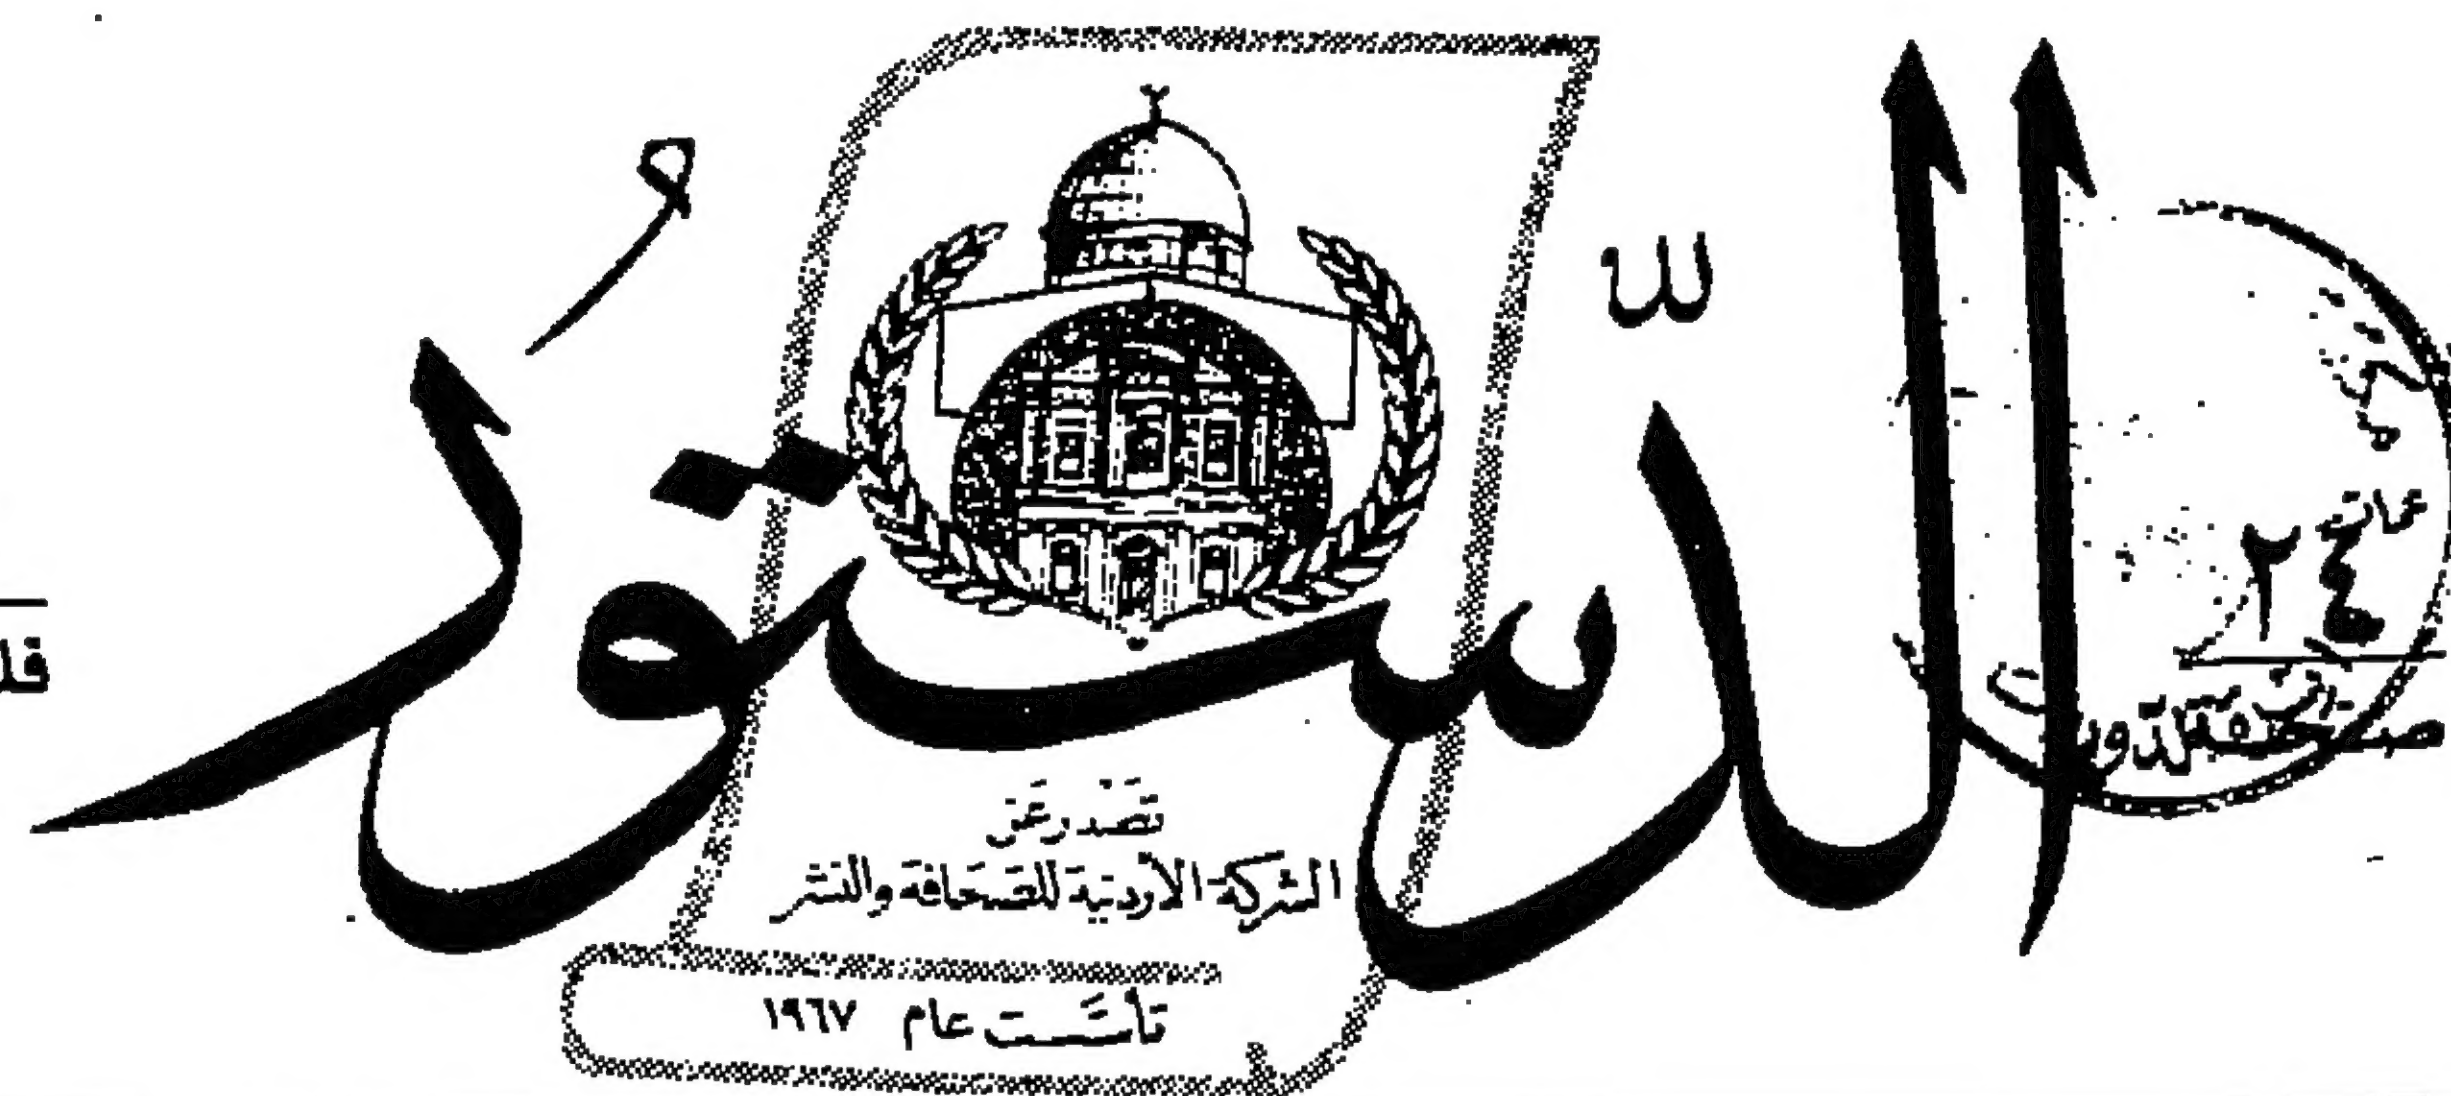 الدستور
تصدر عن
الشركة الأردنية للصحافة والنشر
تأسست عام ١٩٦٧
٢٤